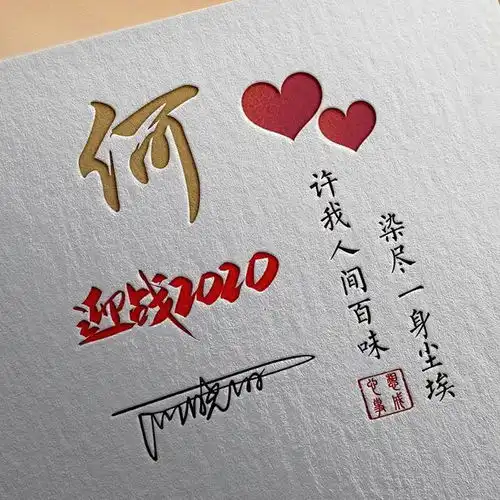 何
迎战2020
染尽一身尘埃
许我人间百味
心想事成